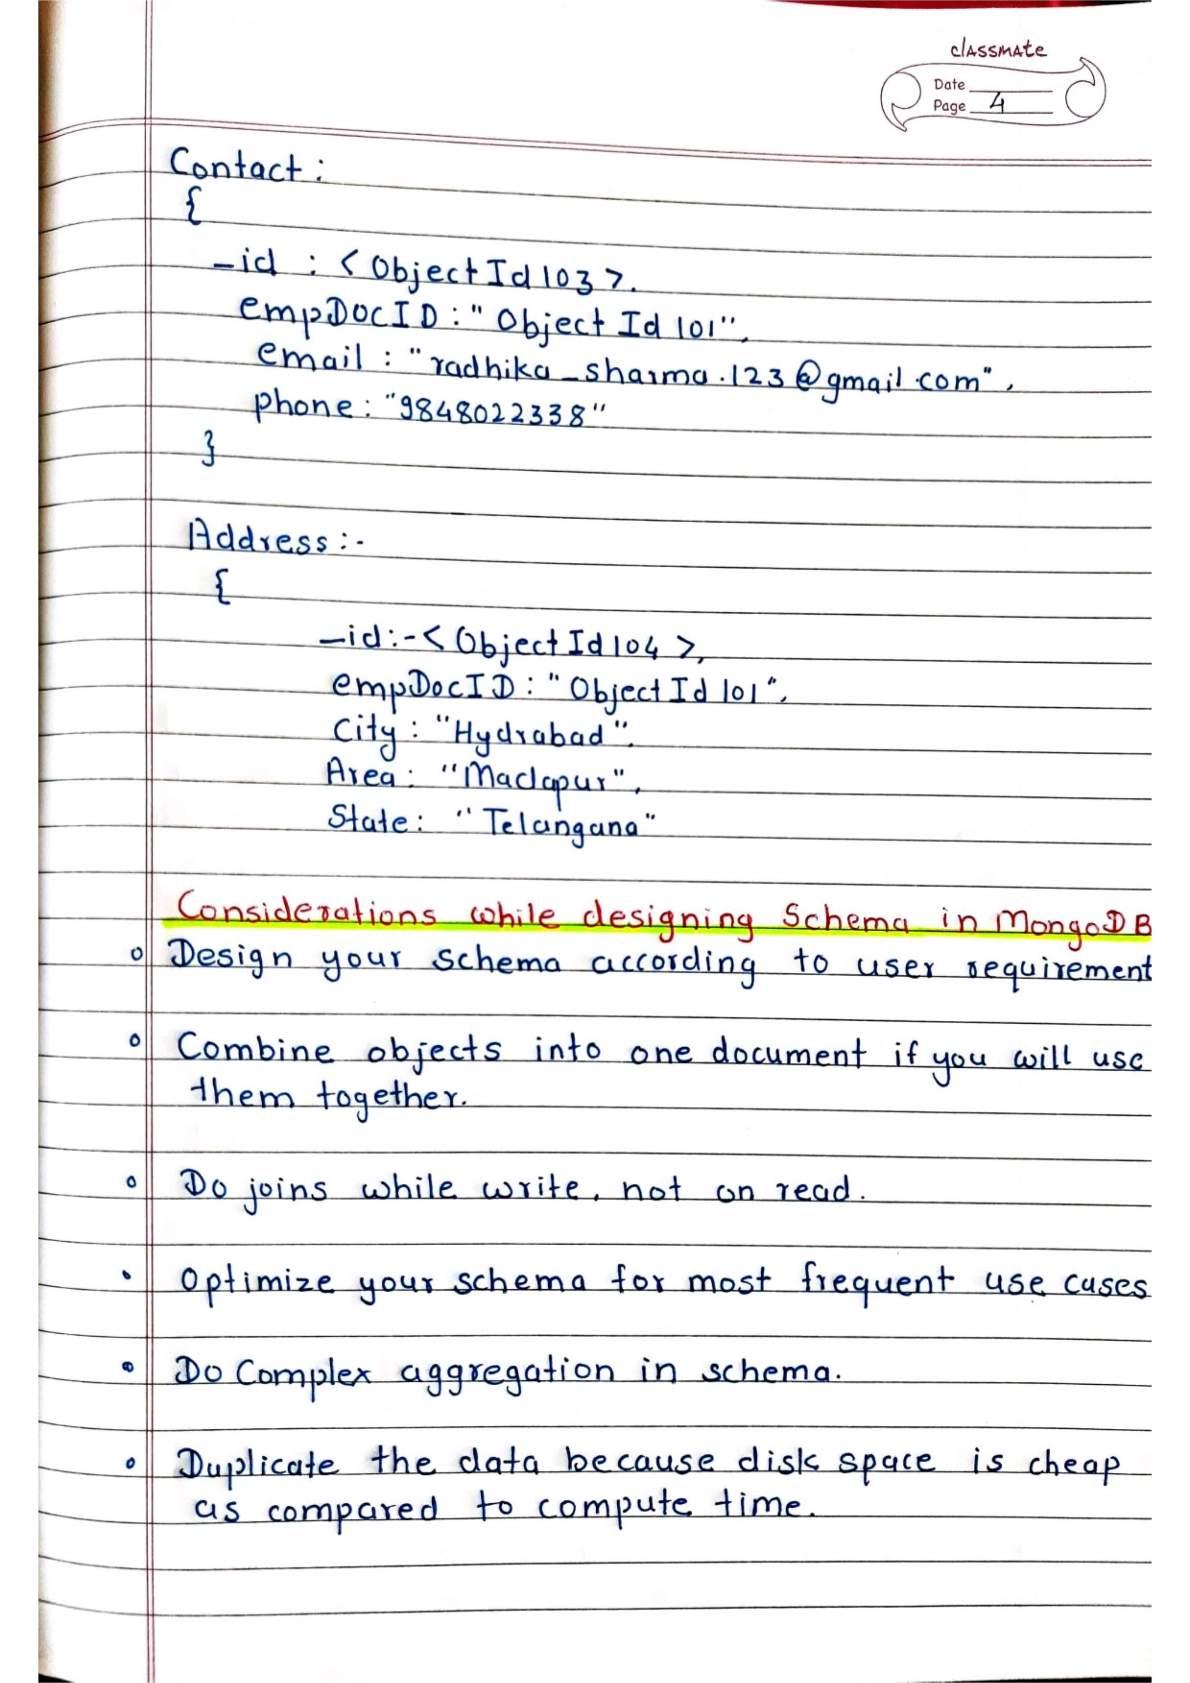 classmate
Date
Page 4
Contact :
{
_id : <ObjectId103>.
empDocID : "Object Id 101",
email : "radhika_sharma.123@gmail.com",
phone : "9848022338"
}
Address :-
{
_id:-<ObjectId104>,
empDocID : "ObjectId101",
City : "Hydrabad",
Area : "Madapur",
State : "Telangana"
Considerations while designing Schema in MongoDB
Design your schema according to user requirement
Combine objects into one document if you will use
them together.
Do joins while write, not on read.
Optimize your schema for most frequent use cases
Do Complex aggregation in schema.
Duplicate the data because disk space is cheap
as compared to compute time.